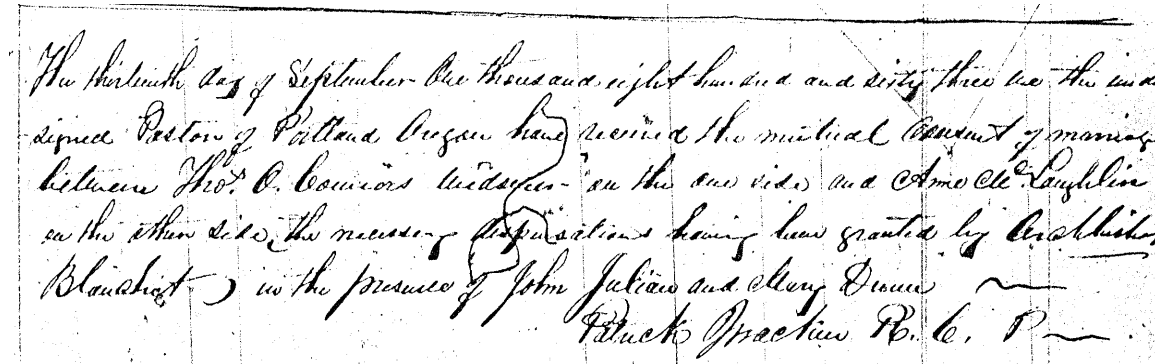 The thirteenth day of September One thousand eight hundred and sixty three we the unde
signed Pastor of Portland Oregon have received the mutual Consent of marriage
between Thos. O. Connors widower on the one side and Ann McLaughlin
on the other side, the necessary dispensations having been granted by Archbishop
Blanchet) in the presence of John Julian and Mary
Patrick R. C. P